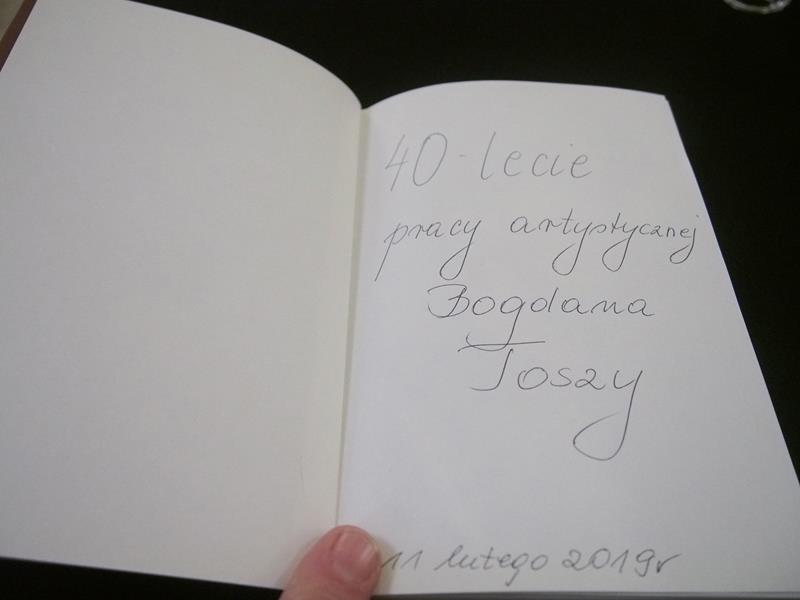 40-lecie
pracy artystycznej
Bogdana
Toszy
11 lutego 2019r